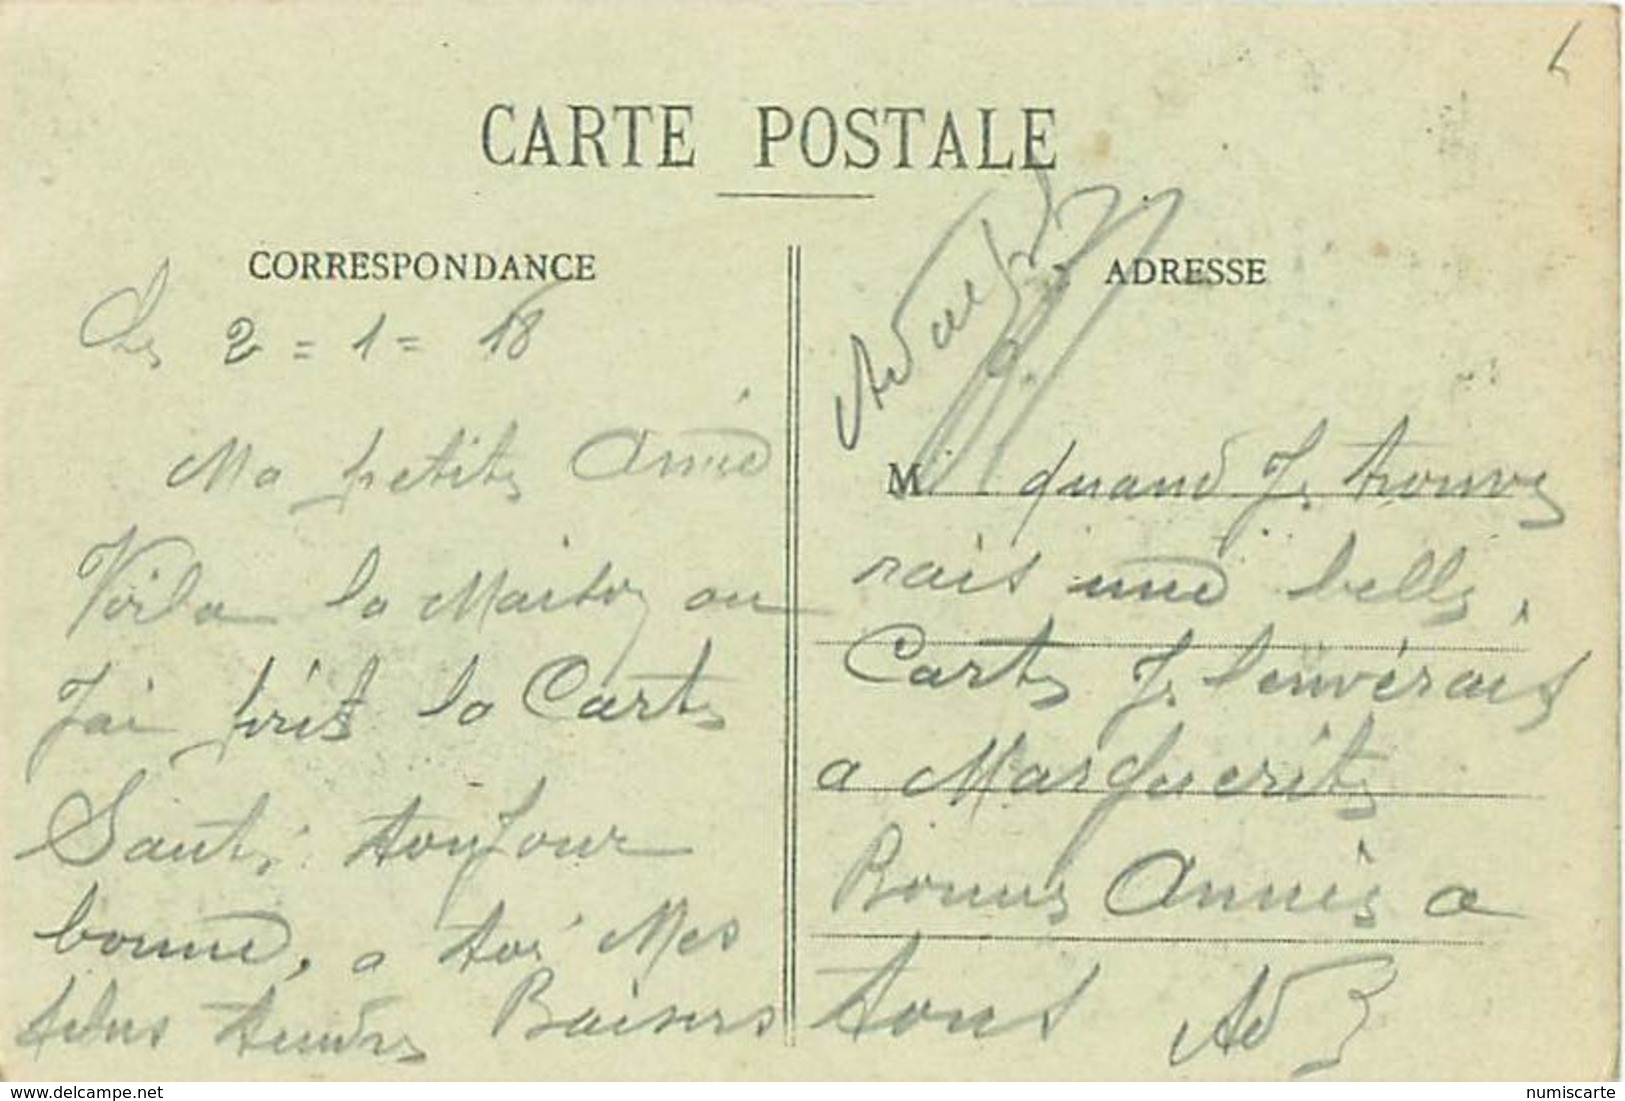 CARTE POSTALE
CORRESPONDANCE
Les 2 = 1 = 18
Ma petite Amie
Voila la Maison ou
J'ai pris la Carte
Santé toujour
bonne, a toi Mes
plus tendres Baisers
ADRESSE
M quand Je trouve
rais une belle
Carte Je l'envérais
a Marguerite
Bonne Année a
tous Ad
www.delcampe.net
numiscarte